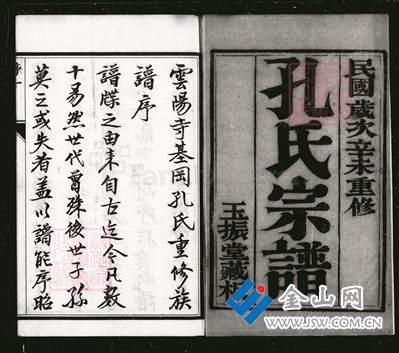 民國歲次辛未重修
孔氏宗譜
玉振堂藏板
雲陽寺基岡孔氏重修族
譜序
譜牒之由来自古迄今凡數
十易然世代曾殊後世子孫
莫之或失者蓋以譜能序昭
金山网
WWW.JSW.COM.CN